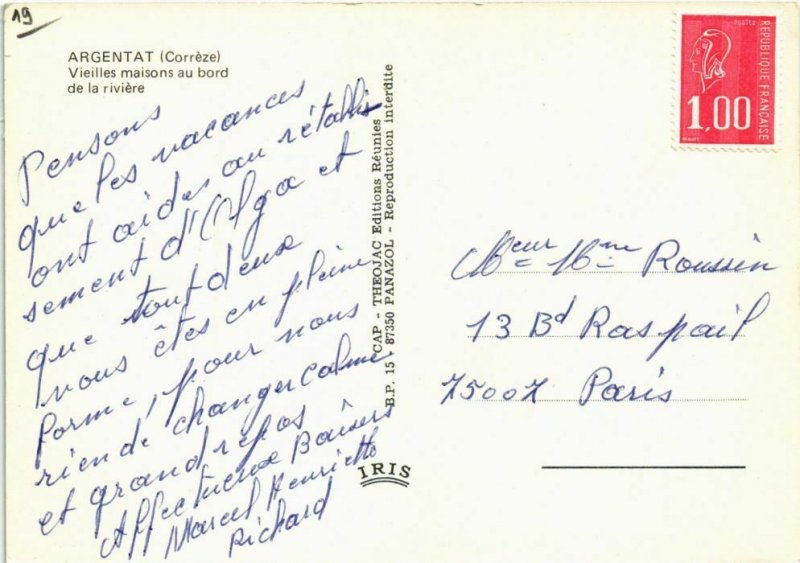 19
ARGENTAT (Corrèze)
Vieilles maisons au bord
de la rivière
Pensons
que les vacances
ont aidés au rétablis
sement d'Olga et
que tout deux
vous êtes en pleine
forme, pour nous
rien de changer calme
et grand repos
Affectueux Baisers
Marcel Henriette
Richard
CAP - THEOJAC Editions Réunies
B.P. 15 - 87350 PANAZOL - Reproduction interdite
IRIS
POSTES
REPUBLIQUE FRANÇAISE
1,00
Meur Mme Roussin
13 Bd Raspail
75007 Paris